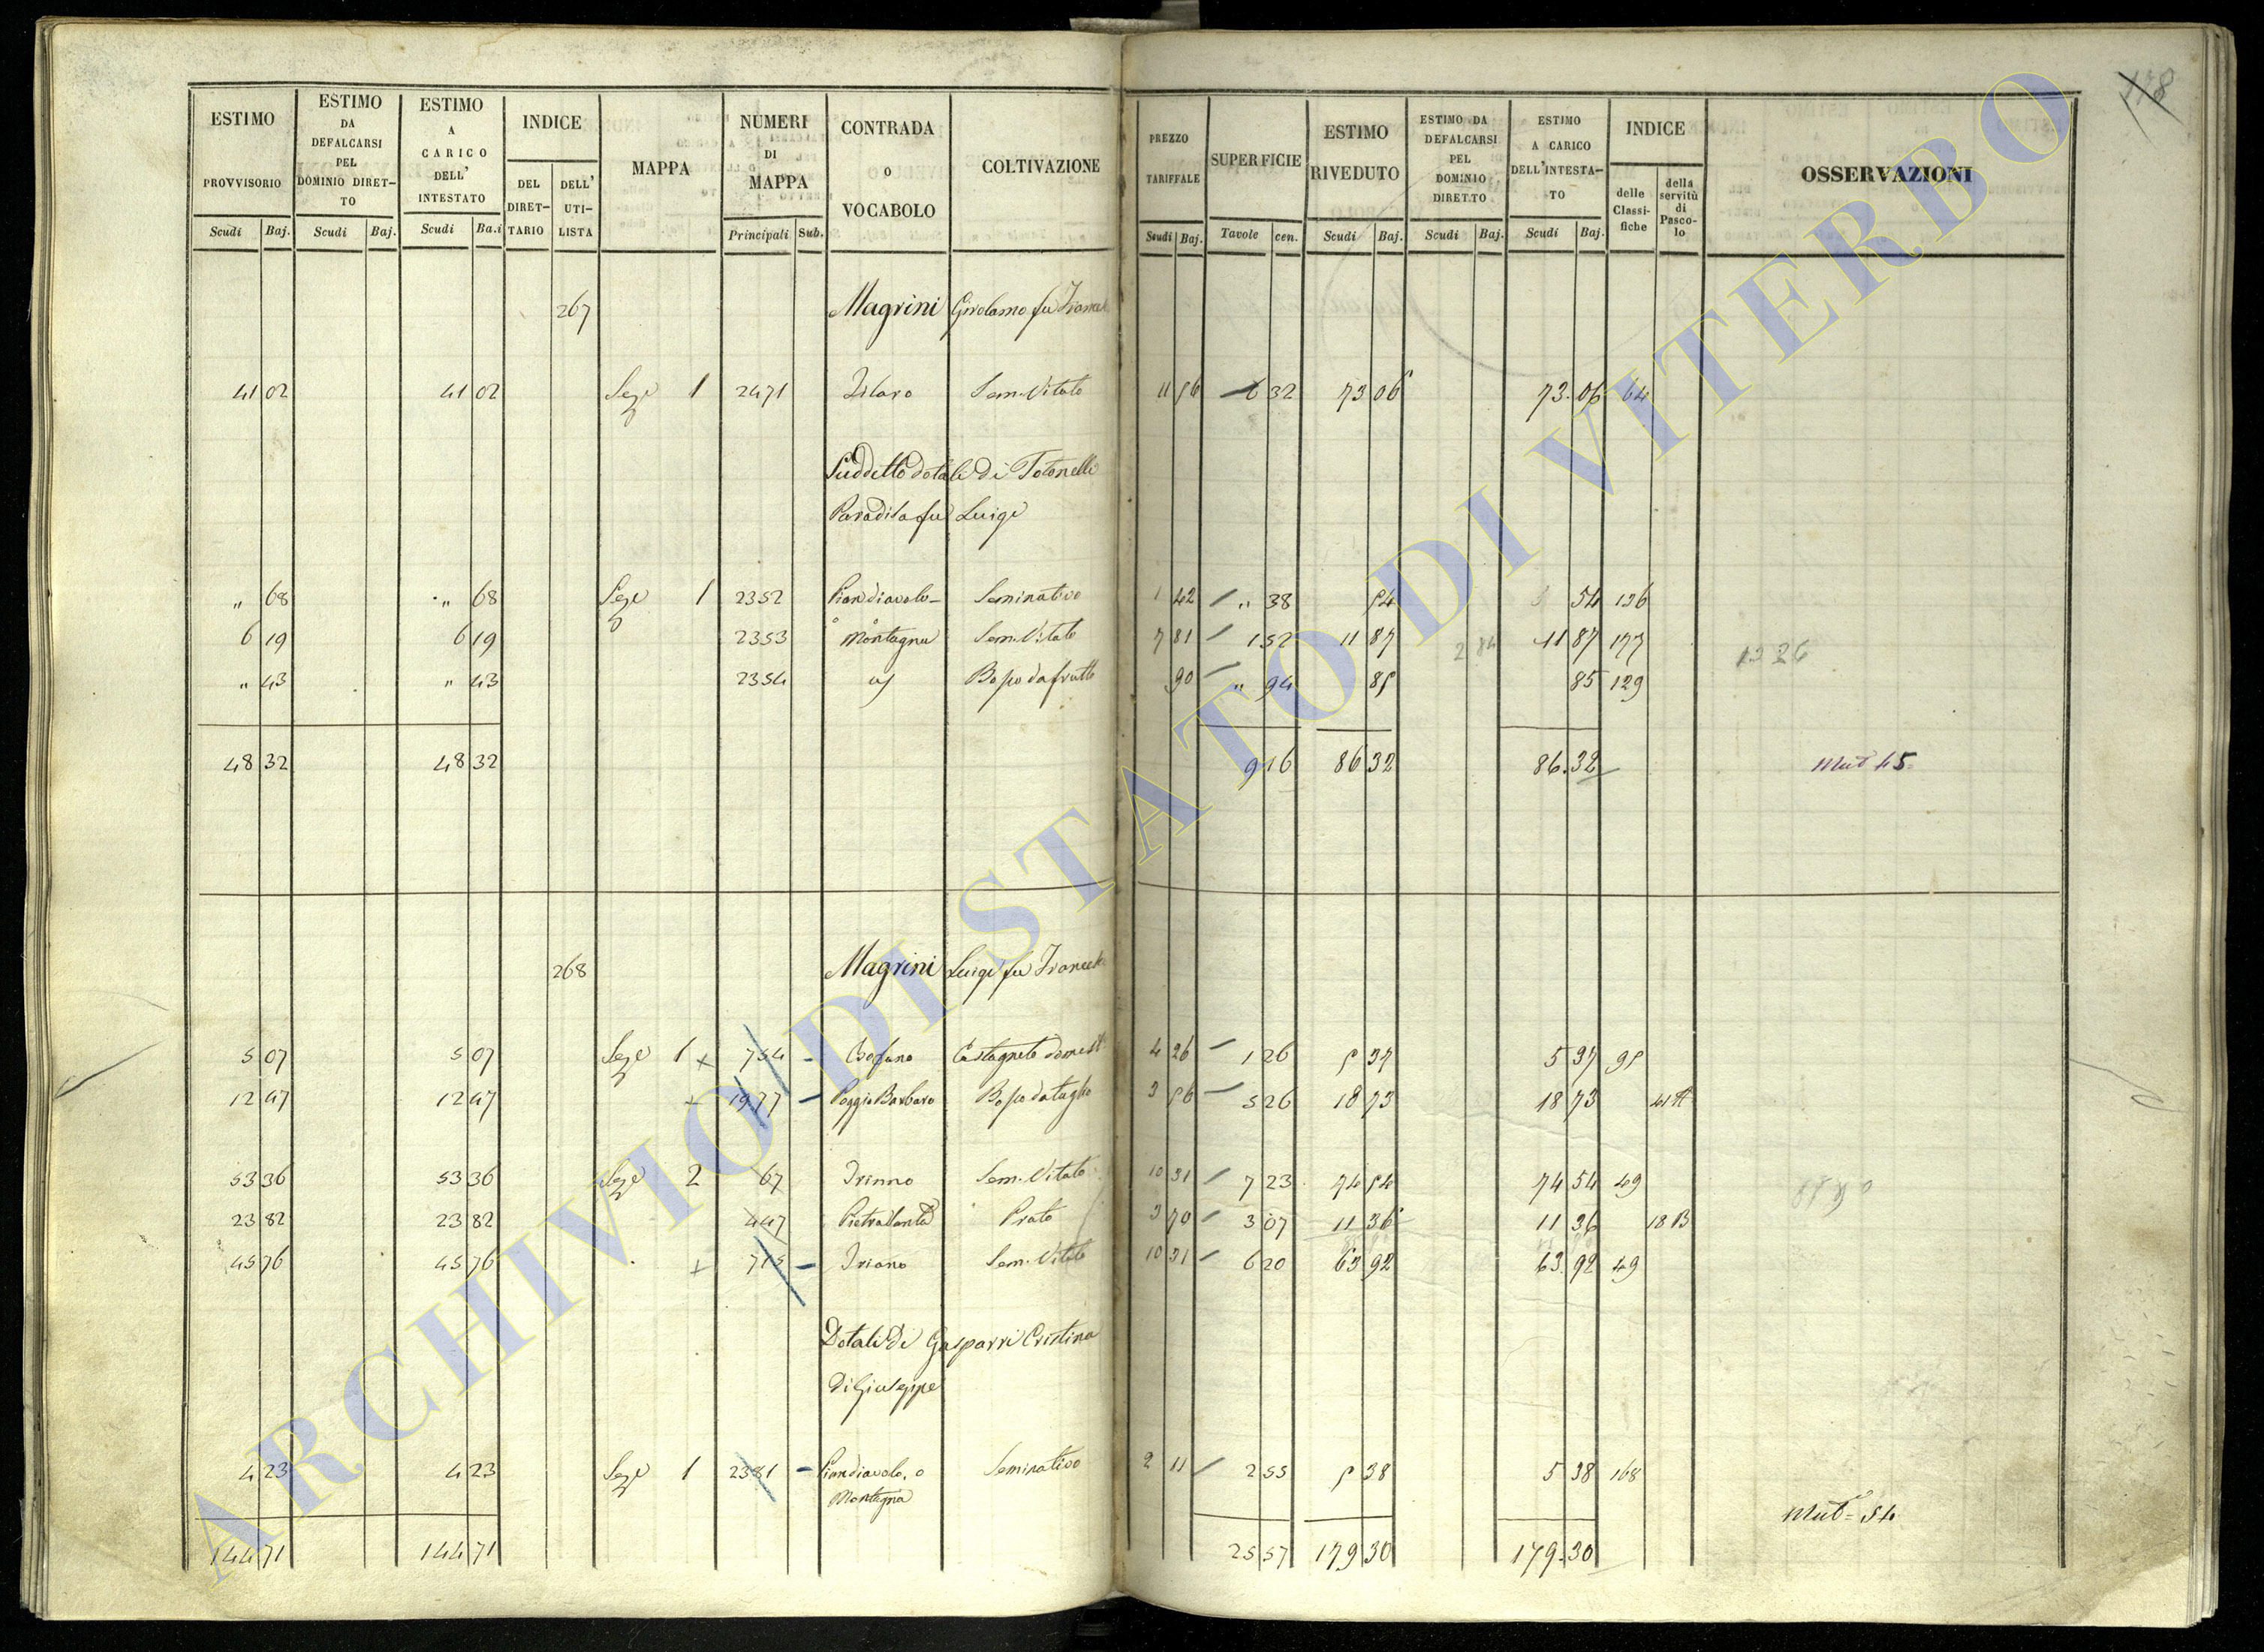 178
ESTIMO PROVVISORIO Scudi Baj.
ESTIMO DA DEFALCARSI PEL DOMINIO DIRET-TO Scudi Baj.
ESTIMO A CARICO DELL' INTESTATO Scudi Ba.i
INDICE DEL DIRET-TARIO DELL' UTI-LISTA
MAPPA
NUMERI DI MAPPA Principali Sub.
CONTRADA O VOCABOLO
COLTIVAZIONE
PREZZO TARIFFALE Scudi Baj.
SUPERFICIE Tavole cen.
ESTIMO RIVEDUTO Scudi Baj.
ESTIMO DA DEFALCARSI PEL DOMINIO DIRETTO Scudi Baj.
ESTIMO A CARICO DELL'INTESTA-TO Scudi Baj.
INDICE delle Classi-fiche della servitù di Pasco-lo
OSSERVAZIONI
267 Magrini Girolamo fu Francek
41 02 41 02 1 2471 Sem. Vitato 11 56 6 32 73 06 73.06 64
Suddetto dotali di Totonelli
fu Luigi
" 68 " 68 1 2352 Piandiavolo Seminativo 1 42 " 38 54 54 136
6 19 6 19 2353 o Montagna Sem. Vitato 7 81 1 52 11 87 2 84 11 87 177 1326
" 43 " 43 2354 Bosco da frutto 90 " 94 85 85 129
48 32 48 32 9 16 86 32 86.32 Mut 45
268 Magrini Luigi fu Francek
5 07 5 07 1 + 754 Castagneto domest 4 26 1 26 5 37 5 37 95
12 47 12 47 1977 Poggio Barbaro Bosco da taglio 3 56 5 26 18 73 18 73 41
53 36 53 36 2 67 Sem. Vitato 10 31 7 23 74 54 74 54 49
23 82 23 82 447 Prato 3 70 3 07 11 36 11 36 18 B
45 76 45 76 + 715 Triano Sem. Vitato 10 31 6 20 63 92 63.92 49
Dotali di Gasparri Cristina
di Giuseppe
4 23 4 23 1 2381 Piandiavolo, o Seminativo 2 11 2 55 5 38 5 38 168
Montagna
Mut = 54
144 71 144 71 25 57 179 30 179.30
ARCHIVIO DI STATO DI VITERBO